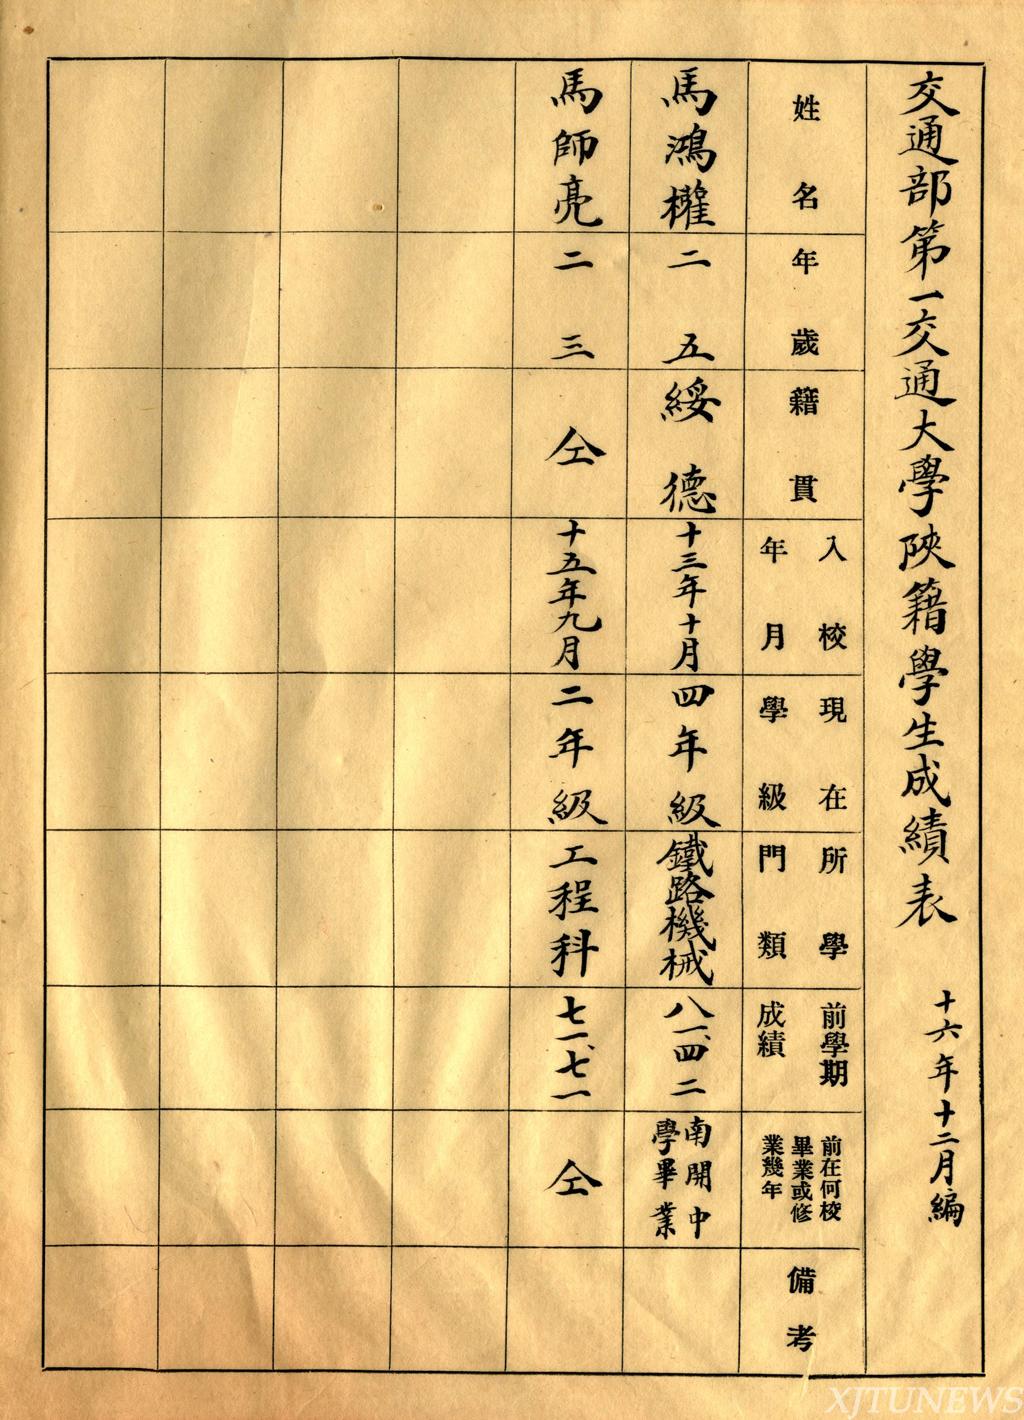 交通部第一交通大學陝籍學生成績表 十六年十二月編
姓名
年歲
籍貫
入校
年月
現在
學級
所學
門類
前學期
成績
前在何校
畢業或修
業幾年
備考
馬鴻權
二五
綏德
十三年十月
四年級
鐵路機械
八一、四二
南開中
學畢業
馬師亮
二三
仝
十五年九月
二年級
工程科
七一、七一
仝
XJTUNEWS